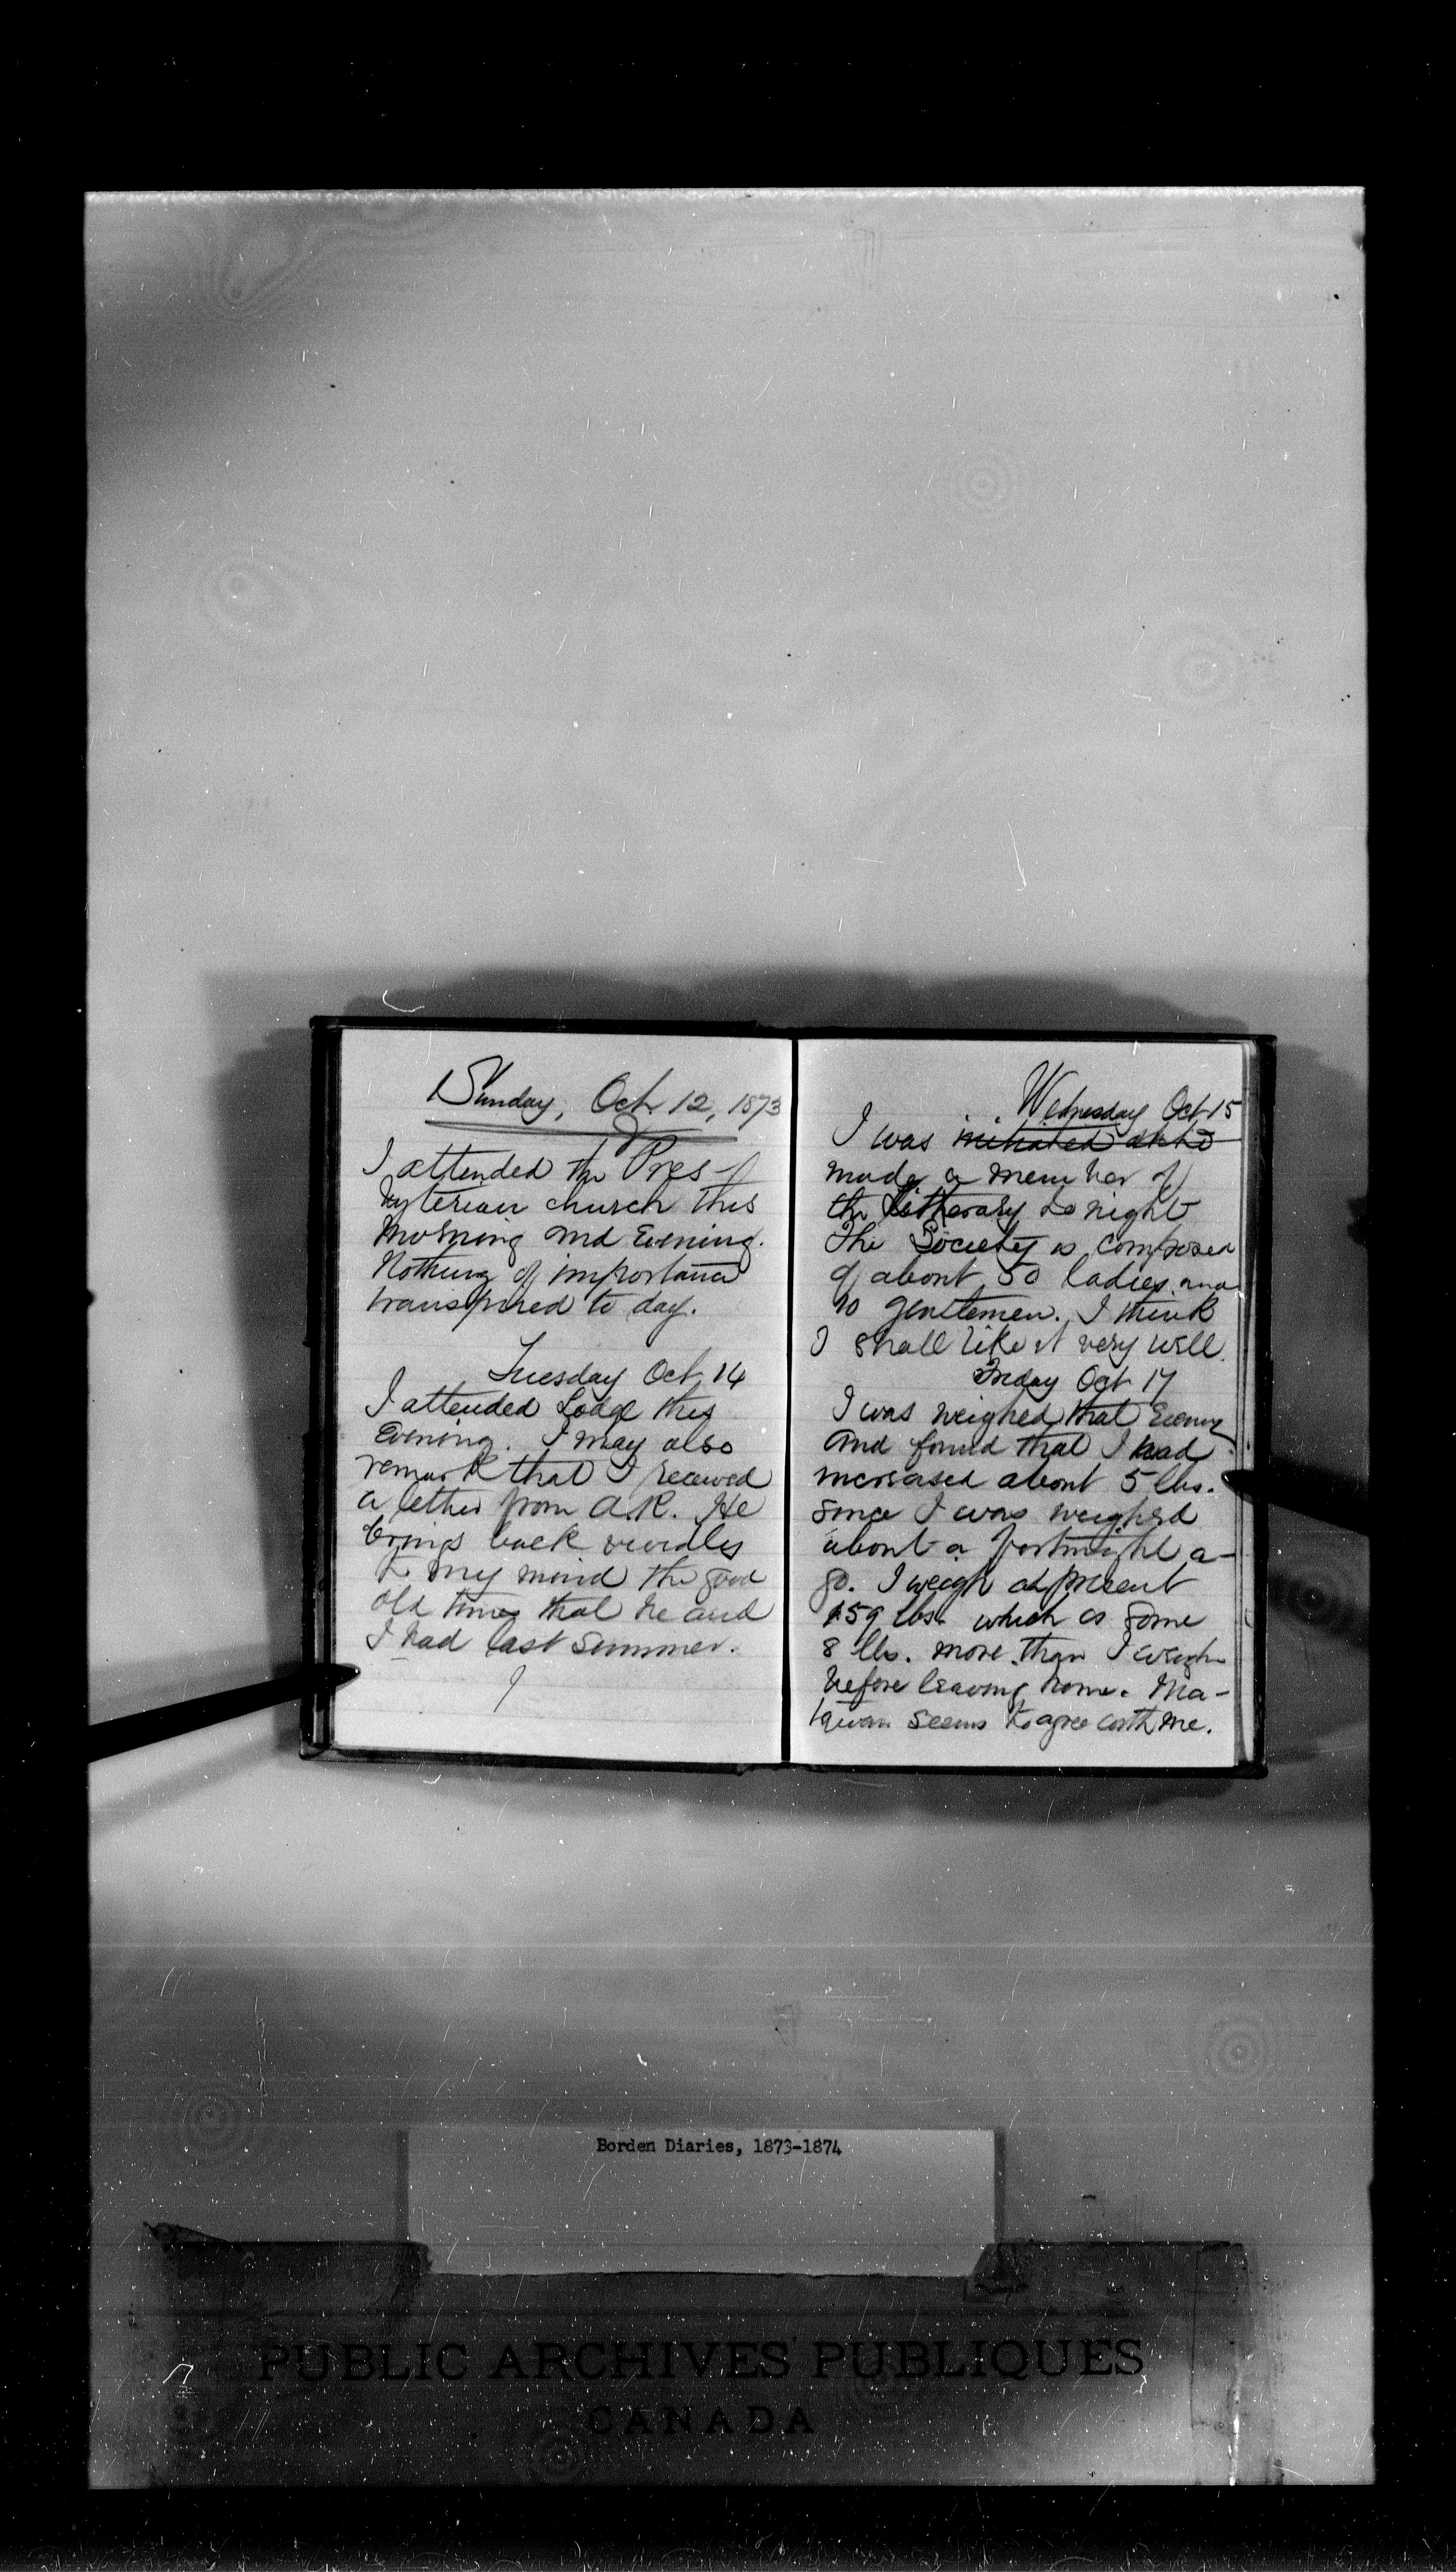 Sunday, Oct. 12, 1873
I attended the Pres-
byterian church this
morning and Evening.
Nothing of importance
transpired to day.
Tuesday Oct. 14
I attended Lodge this
Evening. I may also
remark that I received
a letter from A.R. He
brings back vividly
to my mind the good
old times that he and
I had last summer.
Wednesday Oct 15
I was initiated
made a member of
the Litherary to night
The Society is composed
of about 50 ladies and
10 gentlemen. I think
I shall like it very well.
Friday Oct 17
I was weighed that Evening
and found that I had
increased about 5 lbs.
since I was weighed
about a fortnight a-
go. I weigh at present
159 lbs. which is some
8 lbs. more than I weighed
before leaving home. Ma-
tawan seems to agree with me.
Borden Diaries, 1873-1874
PUBLIC ARCHIVES PUBLIQUES
CANADA